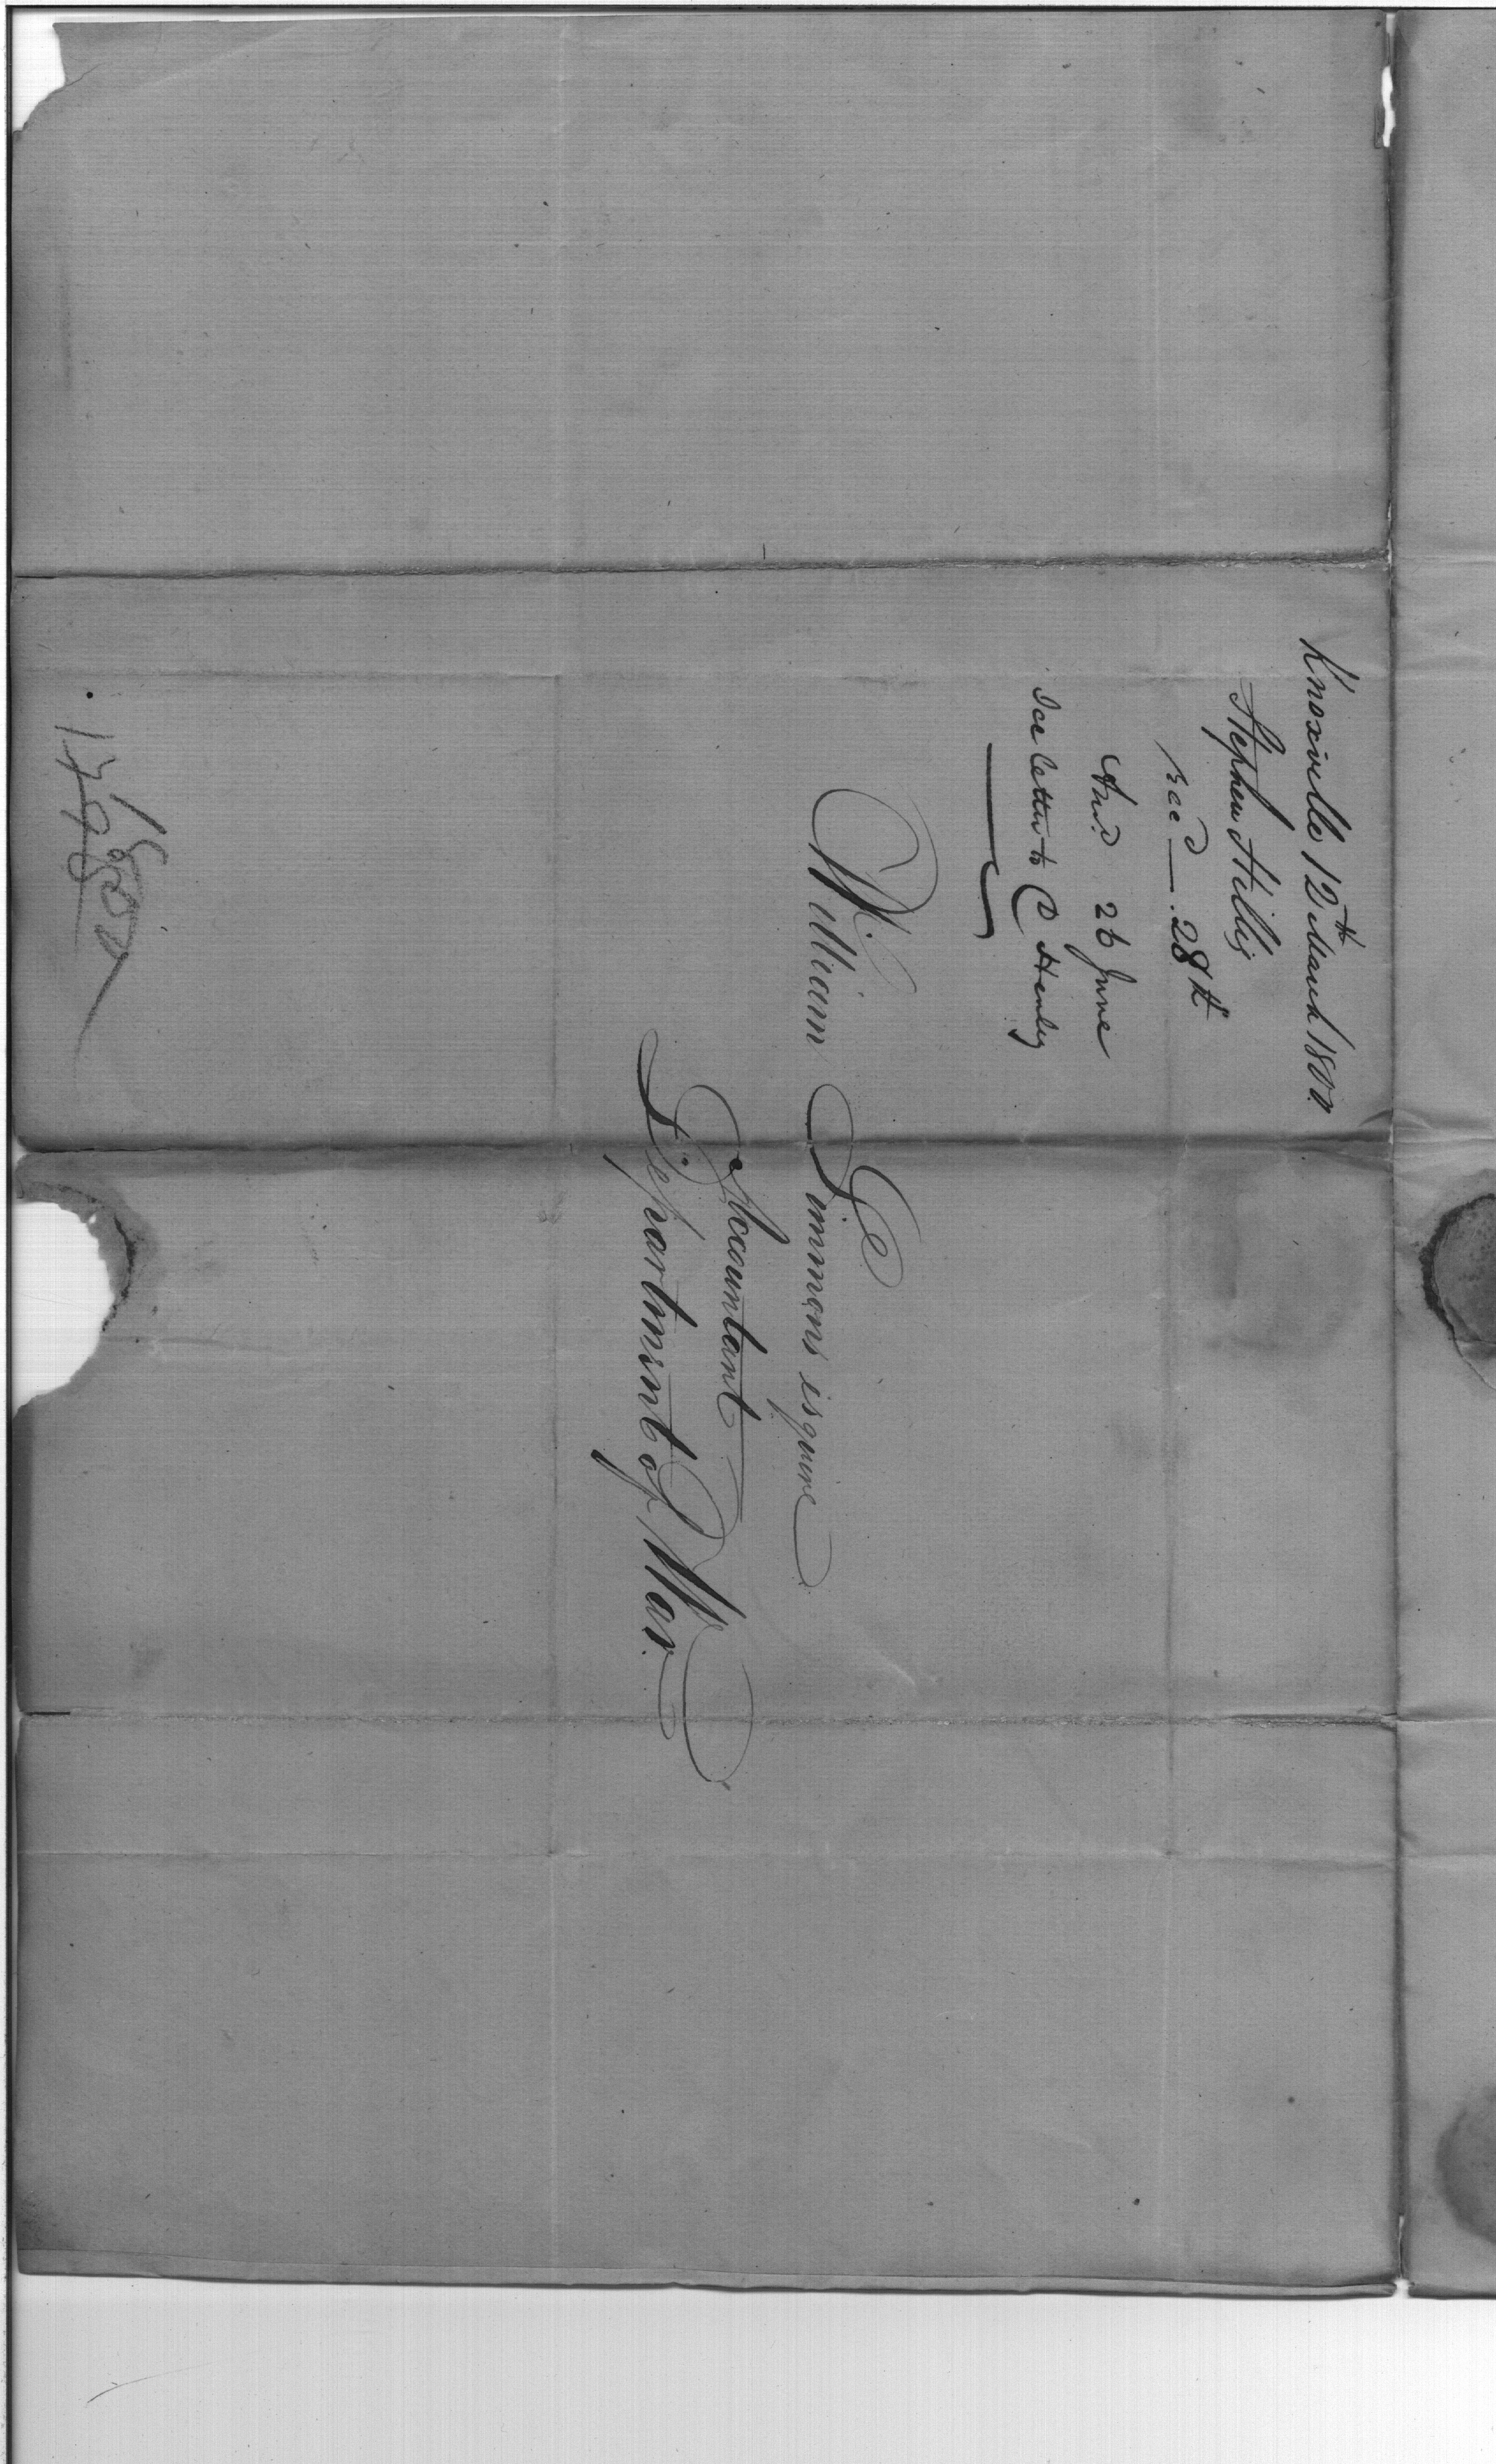 Knoxville 12th March 1800.
Stephen Hillis
Recd — 28th
Ansd 26 June
See letter to D Henley
William Simmons esquire
Accountant
Department of War.
1800